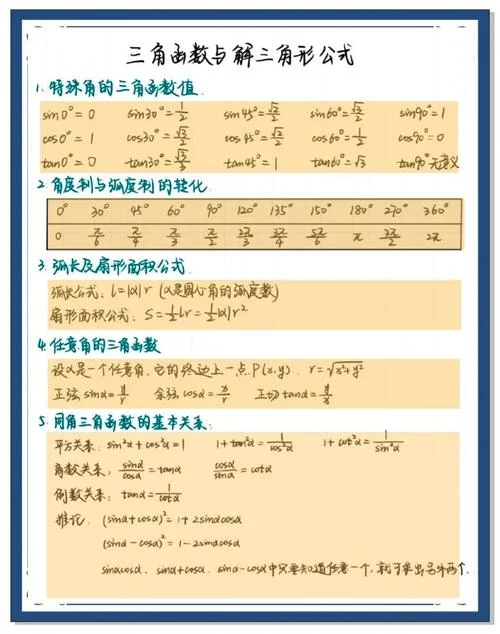 三角函数与解三角形公式
1. 特殊角的三角函数值.
sin0°=0 sin30°=1/2 sin45°=√2/2 sin60°=√3/2 sin90°=1
cos0°=1 cos30°=√3/2 cos45°=√2/2 cos60°=1/2 cos90°=0
tan0°=0 tan30°=√3/3 tan45°=1 tan60°=√3 tan90°无意义
2. 角度制与弧度制的转化.
0° 30° 45° 60° 90° 120° 135° 150° 180° 270° 360°
0 π/6 π/4 π/3 π/2 2π/3 3π/4 5π/6 π 3π/2 2π
3. 弧长及扇形面积公式.
弧长公式: l=|α|r (α是圆心角的弧度数)
扇形面积公式: S=1/2lr=1/2|α|r²
4. 任意角的三角函数
设α是一个任意角, 它的终边上一点P(x,y), r=√x²+y²
正弦sinα=y/r 余弦cosα=x/r 正切tanα=y/x
5. 同角三角函数的基本关系:
平方关系: sin²α+cos²α=1 1+tan²α=1/cos²α 1+cot²α=1/sin²α
商数关系: sinα/cosα=tanα cosα/sinα=cotα
倒数关系: tanα=1/cotα
推论: (sinα+cosα)²=1+2sinαcosα
(sinα-cosα)²=1-2sinαcosα
sinαcosα、sinα+cosα、sinα-cosα中只要知道任意一个, 就可求出另外两个.